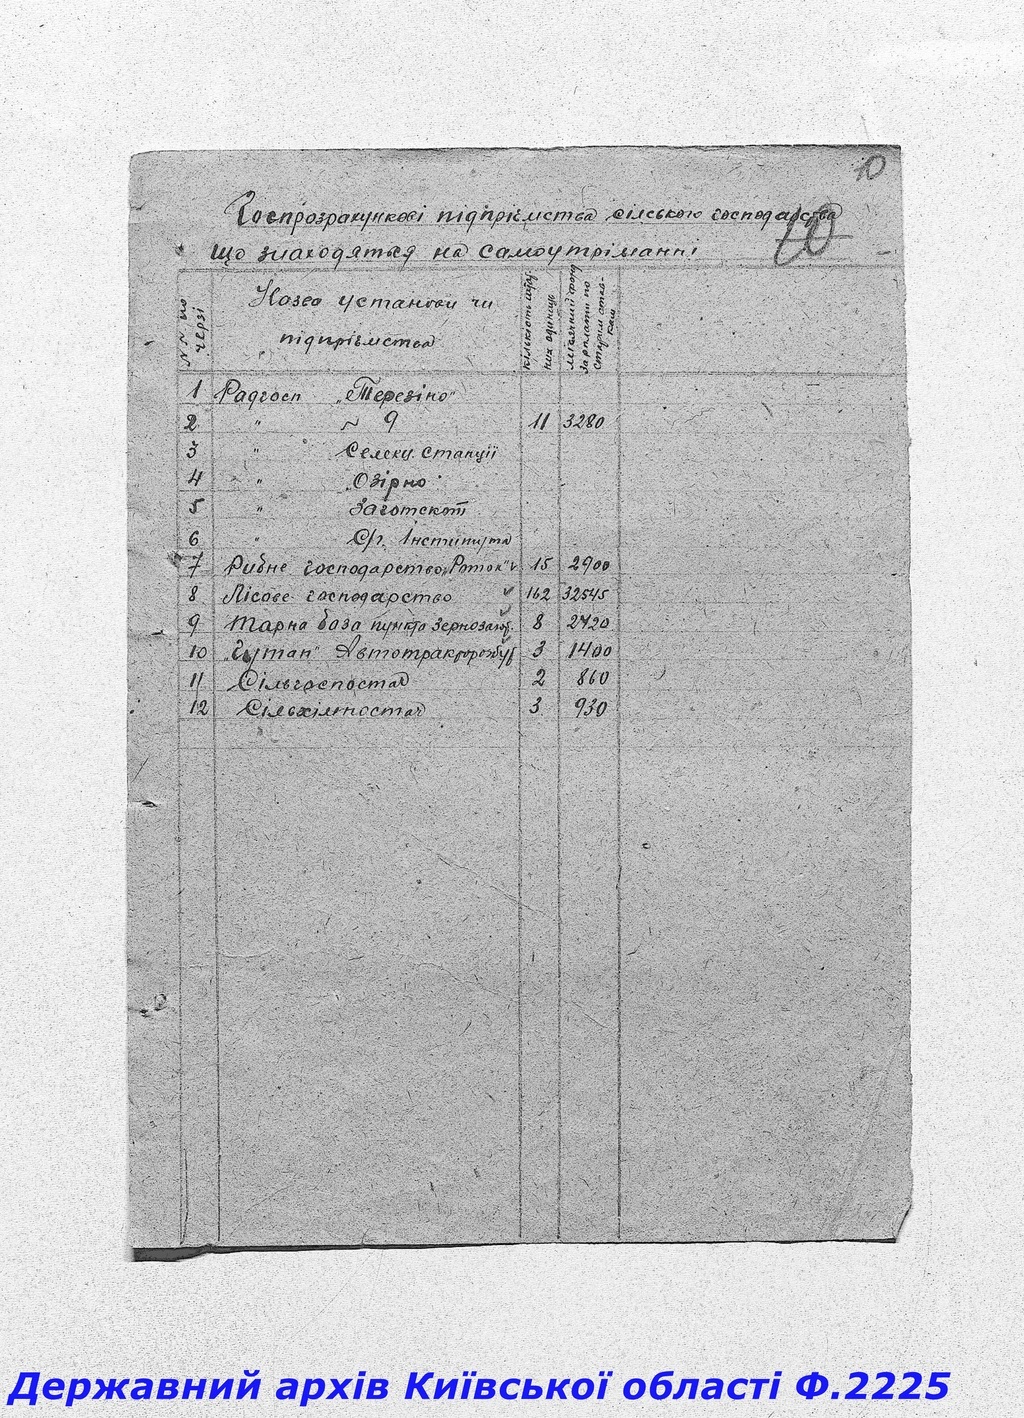 10
Госпрозрахункові підприємства сілського господарства
10
що знаходяться на самоутріманні
№№ по черзі
Назва установи чи підприємства
Кількість штат них одиниць
місячний фонд зарплати по старим став кам
1 Радгосп „Терезіно"
2 " ~ 9 11 3280
3 " Селекц. станції
4 " „Озірно"
5 " Заготскот
6 " С/г. Інститута
7 Рибне господарство „Роток" 15 2900
8 Лісове господарство 162 32545
9 Тарна база пункта Зернозаг. 8 2720
10 „Гутап" 3 1400
11 Сільгоспостач 2 860
12 Сільхімпостач 3 930
Державний архів Київської області Ф.2225